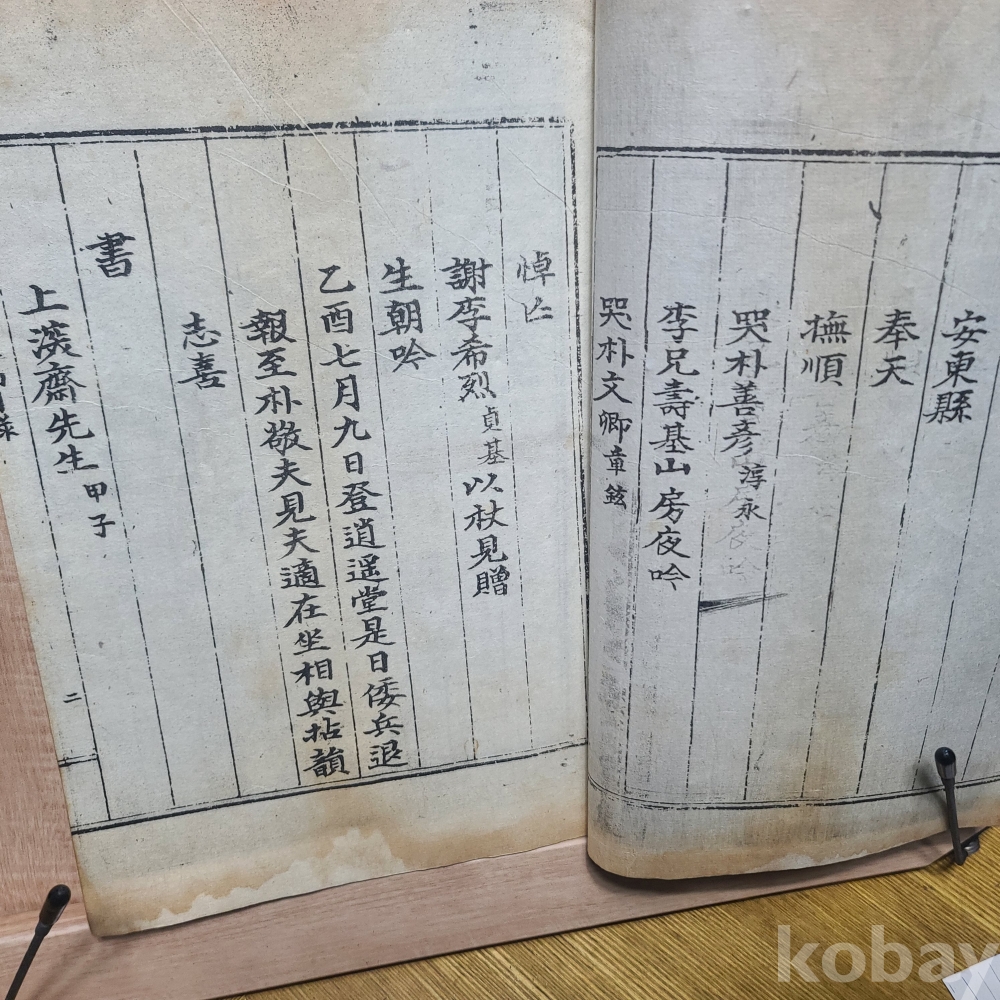 安東縣
奉天
撫順
哭朴善彦淳永
李兄壽基山房夜吟
哭朴文卿章鉉
悼亡
謝李希烈貞基以杖見贈
生朝吟
乙酉七月九日登逍遥堂是日倭兵退
報至朴敬夫見夫適在坐相與拈韻
志喜
書
上淡齋先生甲子
二
kobay